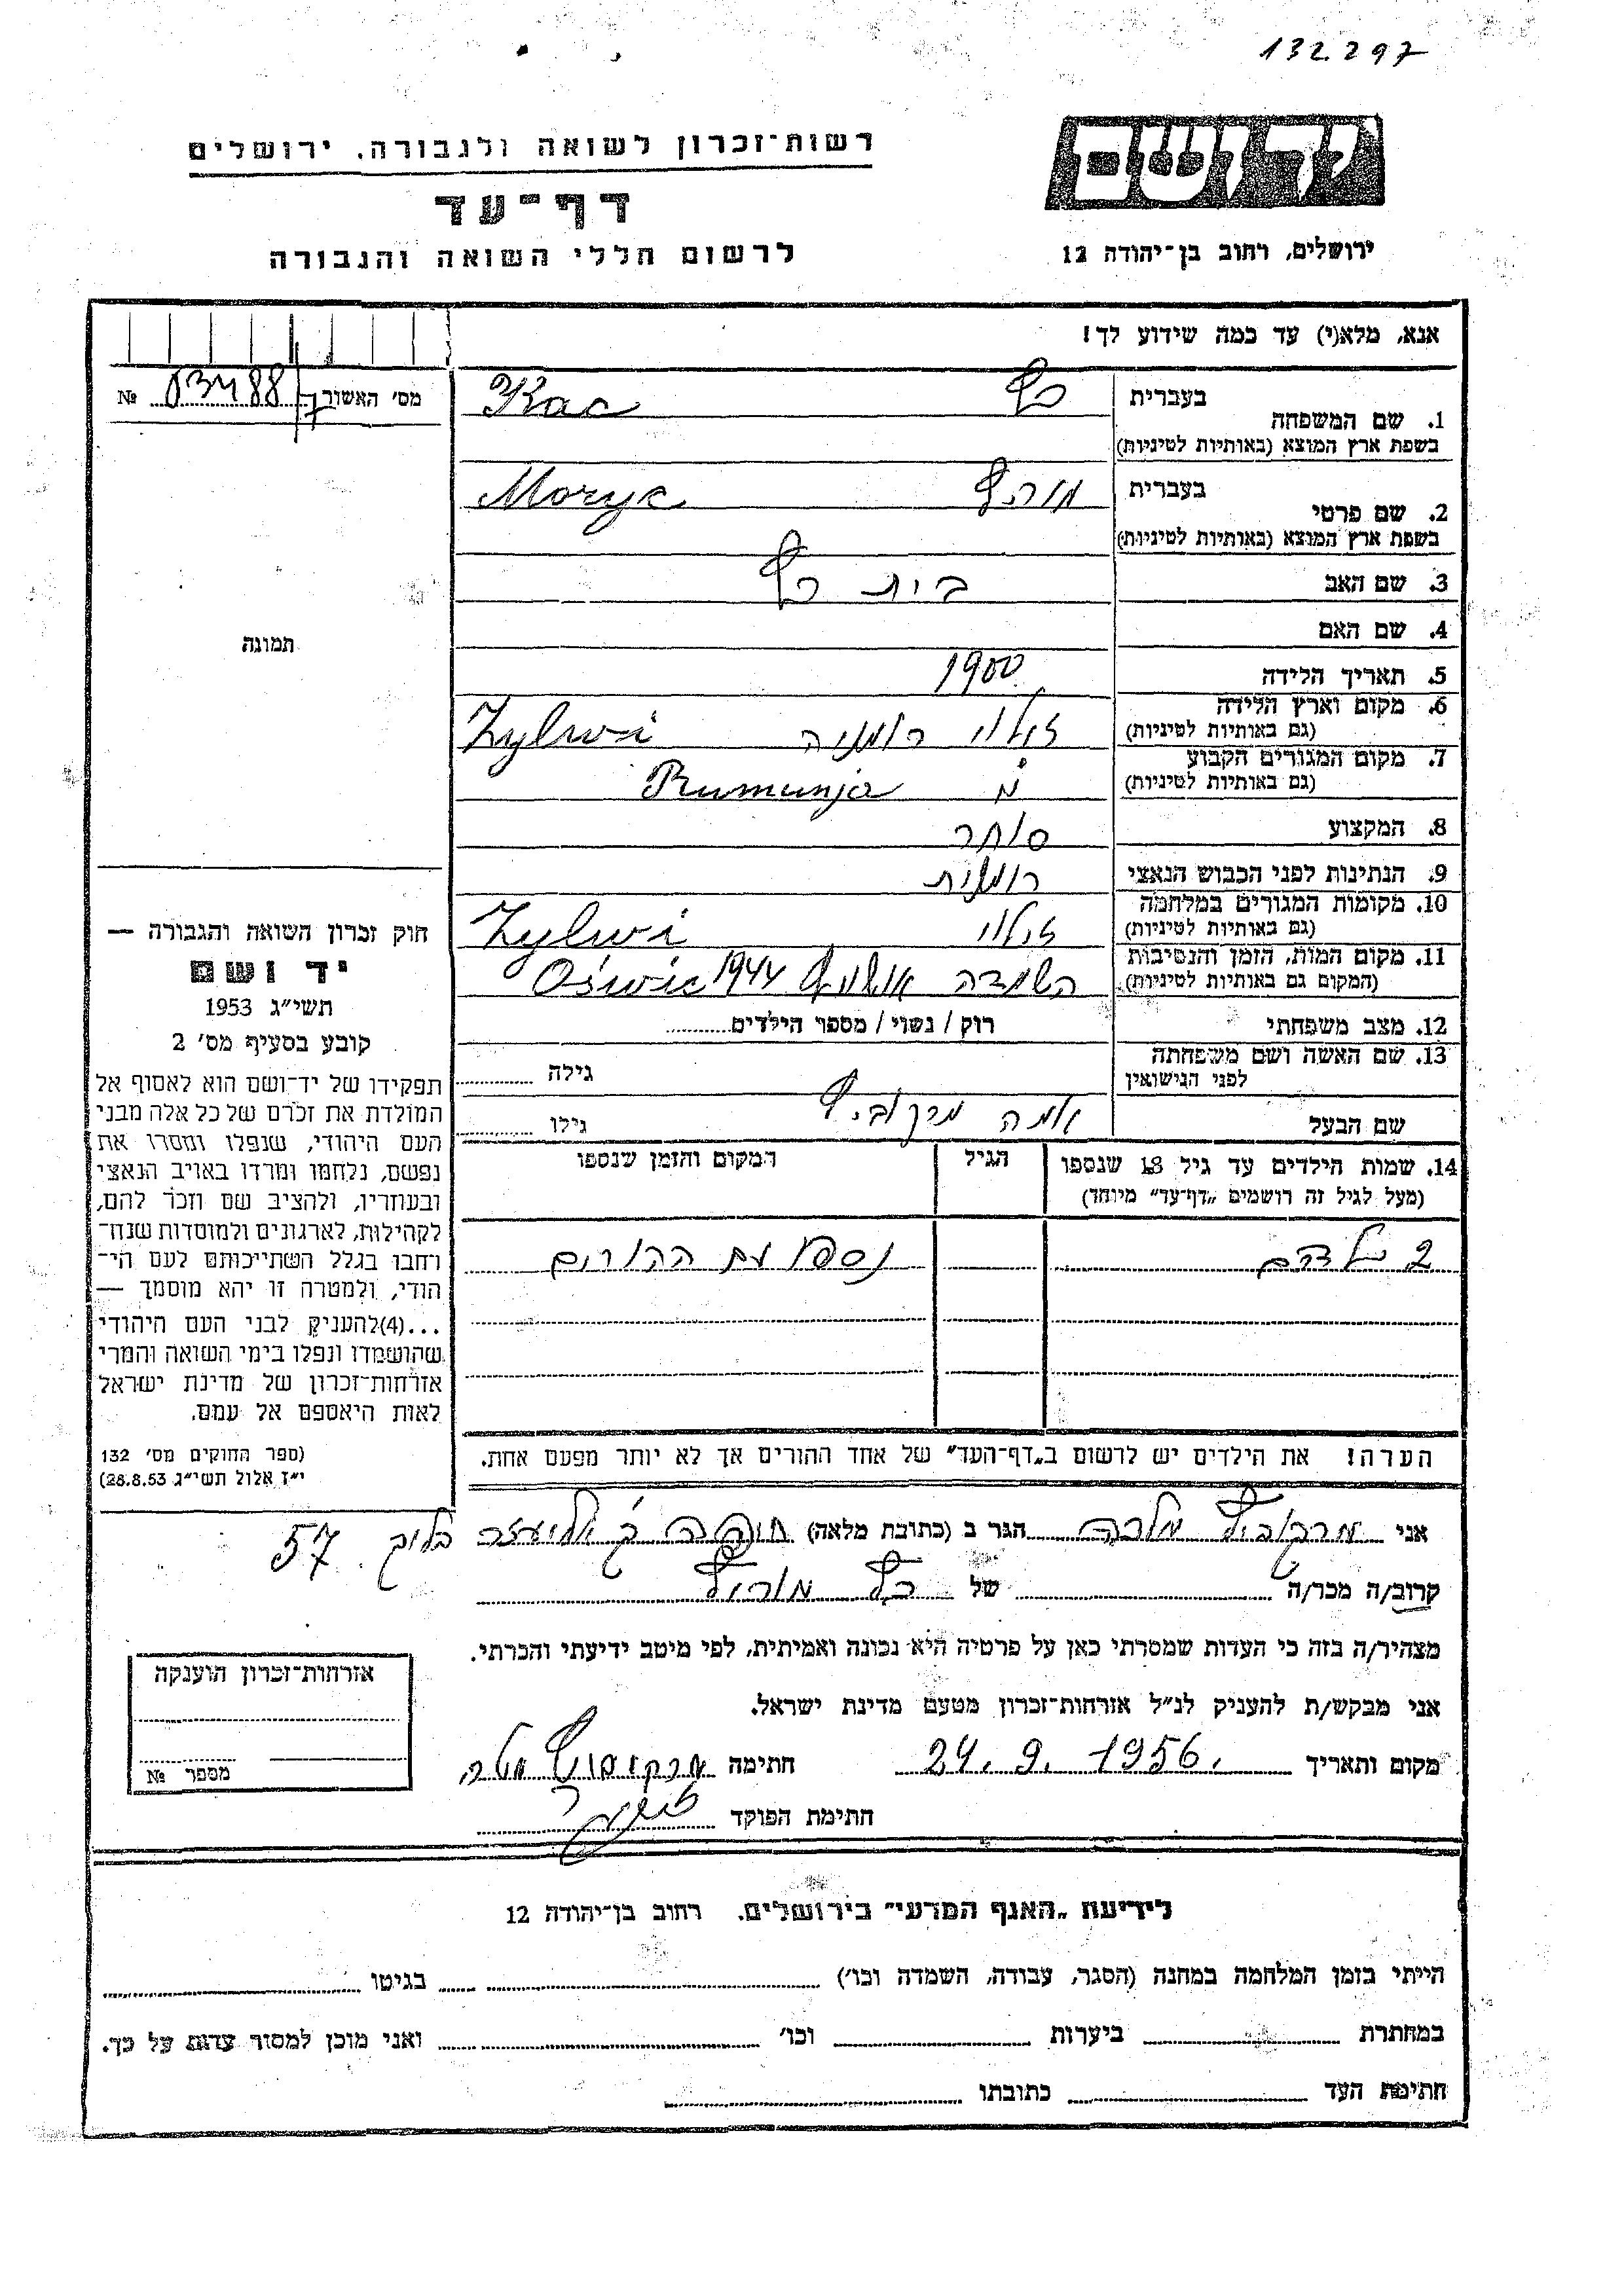 132.297
רשות־זכרון לשואה ולגבורה. ירושלים
דף־עד
לרשום חללי השואה והגבורה
ידושם
ירושלים, רחוב בן־יהודה 12
אנא, מלא(י) עד כמה שידוע לך!
מס׳ האשור № 03488
1. שם המשפחה
בעברית כץ
בשפת ארץ המוצא (באותיות לטיניות) Kac
2. שם פרטי
בעברית
בשפת ארץ המוצא (באותיות לטיניות) Moryc
3. שם האב בית כץ
4. שם האם
5. תאריך הלידה 1900
6. מקום וארץ הלידה
(גם באותיות לטיניות) רומניה Zylwi
7. מקום המגורים הקבוע
(גם באותיות לטיניות) Rumunja
8. המקצוע סוחר
9. הנתינות לפני הכבוש הנאצי רומנית
10. מקומות המגורים במלחמה
(גם באותיות לטיניות) Zylwi
11. מקום המות, הזמן והנסיבות
(המקום גם באותיות לטיניות) השמדה 1944 Oświc
12. מצב משפחתי רוק / נשוי / מספר הילדים
13. שם האשה ושם משפחתה
לפני הנישואין גילה
שם הבעל גילו
14. שמות הילדים עד גיל 18 שנספו
(מעל לגיל זה רושמים „דף־עד״ מיוחד)
הגיל
המקום והזמן שנספו
2 ילדים נספו עם ההורים
הערה! את הילדים יש לרשום ב„דף־העד״ של אחד ההורים אך לא יותר מפעם אחת.
תמונה
חוק זכרון השואה והגבורה —
יד ושם
תשי״ג 1953
קובע בסעיף מס׳ 2
תפקידו של יד־ושם הוא לאסוף אל
המולדת את זכרם של כל אלה מבני
העם היהודי, שנפלו ומסרו את
נפשם, נלחמו ומרדו באויב הנאצי
ובעוזריו, ולהציב שם וזכר להם,
לקהילות, לארגונים ולמוסדות שנח־
רחבו בגלל השתייכותם לעם הי־
הודי, ולמטרה זו יהא מוסמך —
...(4)להעניק לבני העם היהודי
שהושמדו ונפלו בימי השואה והמרי
אזרחות־זכרון של מדינת ישראל
לאות היאספם אל עמם.
(ספר החוקים מס׳ 132
י״ז אלול תשי״ג 28.8.53)
אני מרקוביץ הגר ב (כתובת מלאה) בלוק 57
קרוב/ה מכר/ה של כץ מוריץ
מצהיר/ה בזה כי העדות שמסרתי כאן על פרטיה היא נכונה ואמיתית, לפי מיטב ידיעתי והכרתי.
אני מבקש/ת להעניק לנ״ל אזרחות־זכרון מטעם מדינת ישראל.
מקום ותאריך 24. 9. 1956. חתימה
חתימת הפוקד
אזרחות־זכרון הוענקה
מספר №
לידיעת „האגף המדעי״ בירושלים. רחוב בן־יהודה 12
הייתי בזמן המלחמה במחנה (הסגר, עבודה, השמדה וכו׳) בגיטו
במחתרת ביערות וכו׳ ואני מוכן למסור עדות על כך.
חתימת העד כתובתו